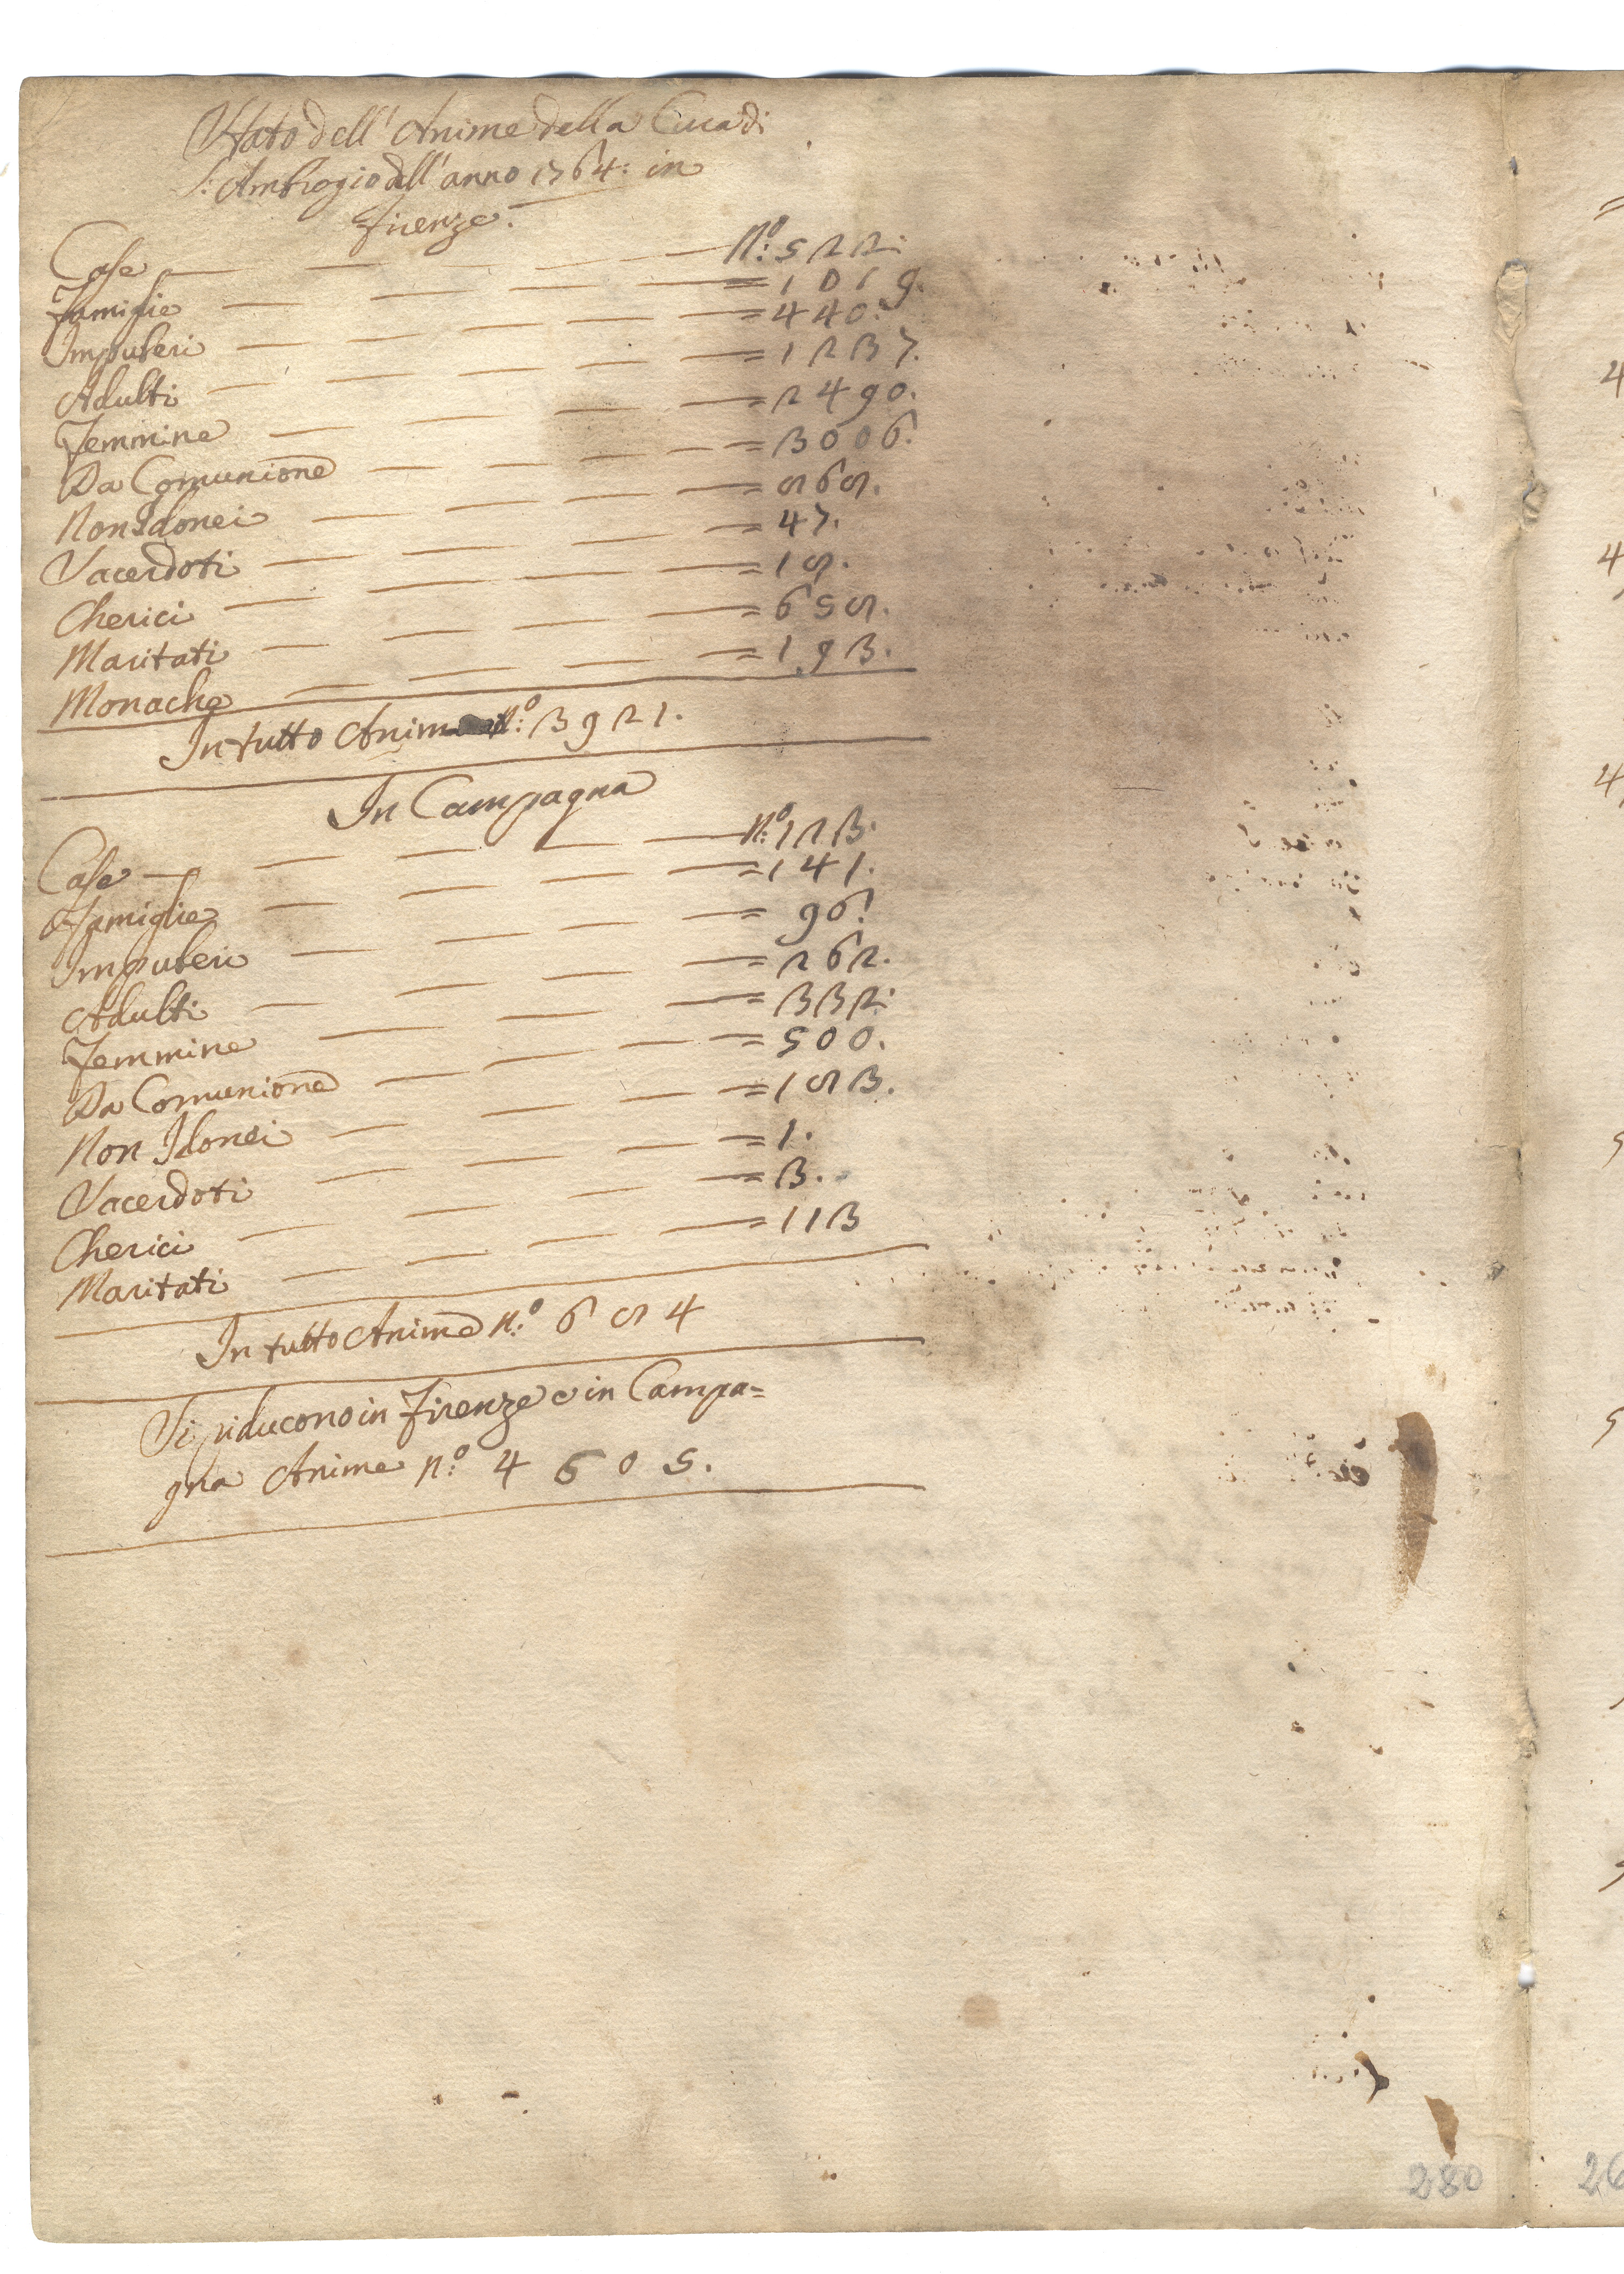 Stato dell' Anime della Cura di
S: Ambrogio dell' anno 1764: in
Firenze.
Case — — — — — N:° 522.
Famiglie — — — — = 1019.
Impuberi — — — — = 440.
Adulti — — — — = 1237.
Femmine — — — — = 2490.
Da Comunione — — — — = 3006.
Non Idonei — — — — = 868.
Sacerdoti — — — — = 47.
Cherici — — — — = 18.
Maritati — — — — = 658.
Monache — — — — = 193.
In tutto Anime n:° 3921.
In Campagna
Case — — — — — N:° 123.
Famiglie — — — — = 141.
Impuberi — — — — = 96.
Adulti — — — — = 262.
Femmine — — — — = 332.
Da Comunione — — — — = 500.
Non Idonei — — — — = 183.
Sacerdoti — — — — = 1.
Cherici — — — — = 3.
Maritati — — — — = 113
In tutto Anime n:° 684
Si riducono in Firenze e in Campa=
gna Anime n:° 4605.
280